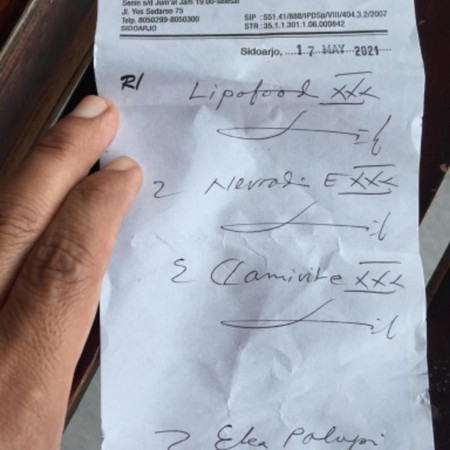 Senin s/d Jum'at Jam 19.00-selesai
Jl. Yos Sudarso 75
Telp. 8050299-8050300
SIDOARJO
SIP : 551.41/888/IPDSp/VIII/404.3.2/2007
STR : 35.1.1.301.1.06.000842
Sidoarjo, 17 MAY 2021
R/
Lipofood XXX
Nevrodi E XXX
Clamivite XXX
Eka Palupi